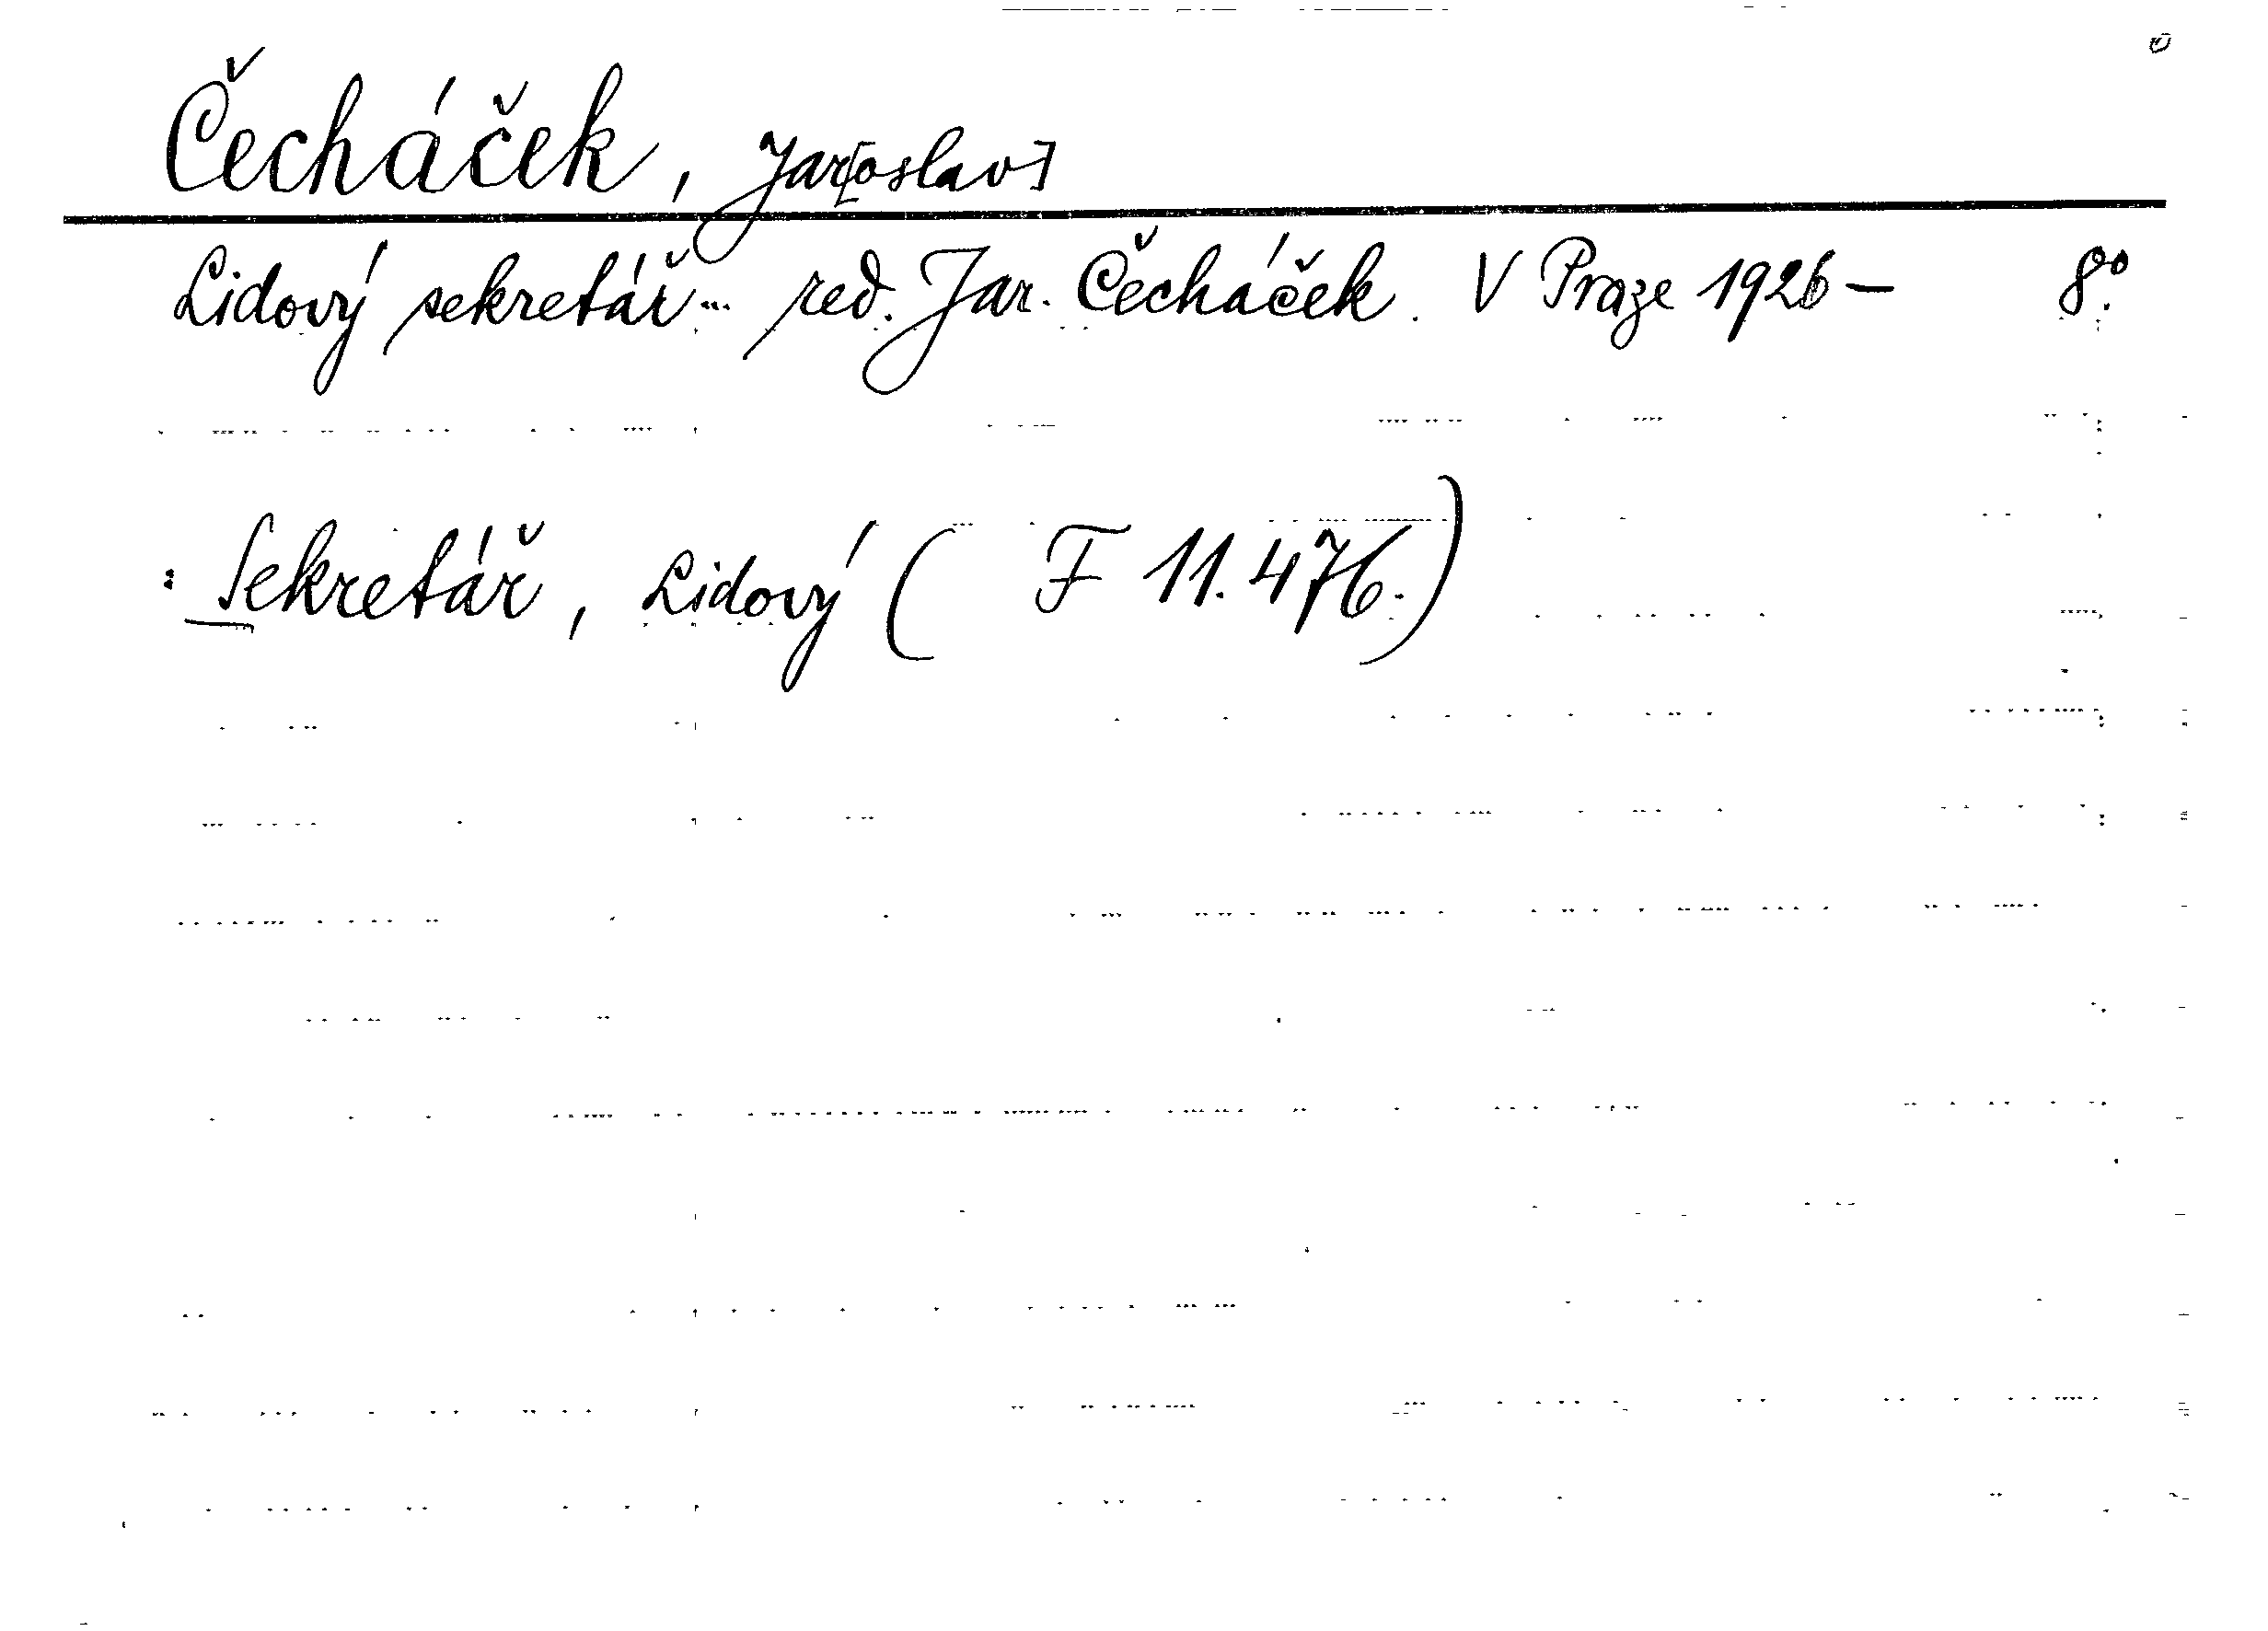 Čecháček, Jar[oslav]
Lidový sekretář... red. Jar. Čecháček. V Praze 1926- 8°.
: Sekretář, Lidový ( F 11.476.)